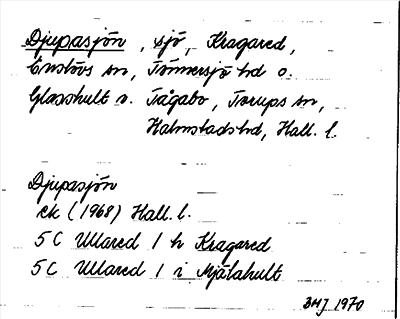 Djupasjön, sjö, Kragared,
Enslövs sn, Tönnersjö hd o.
Glasshult v. Fågabo, Torups sn,
Halmstads hd, Hall. l.
Djupasjön
ek (1968) Hall. l.
5C Ullared 1 h Kragared
5C Ullared 1 i Mjälahult
BHJ 1970